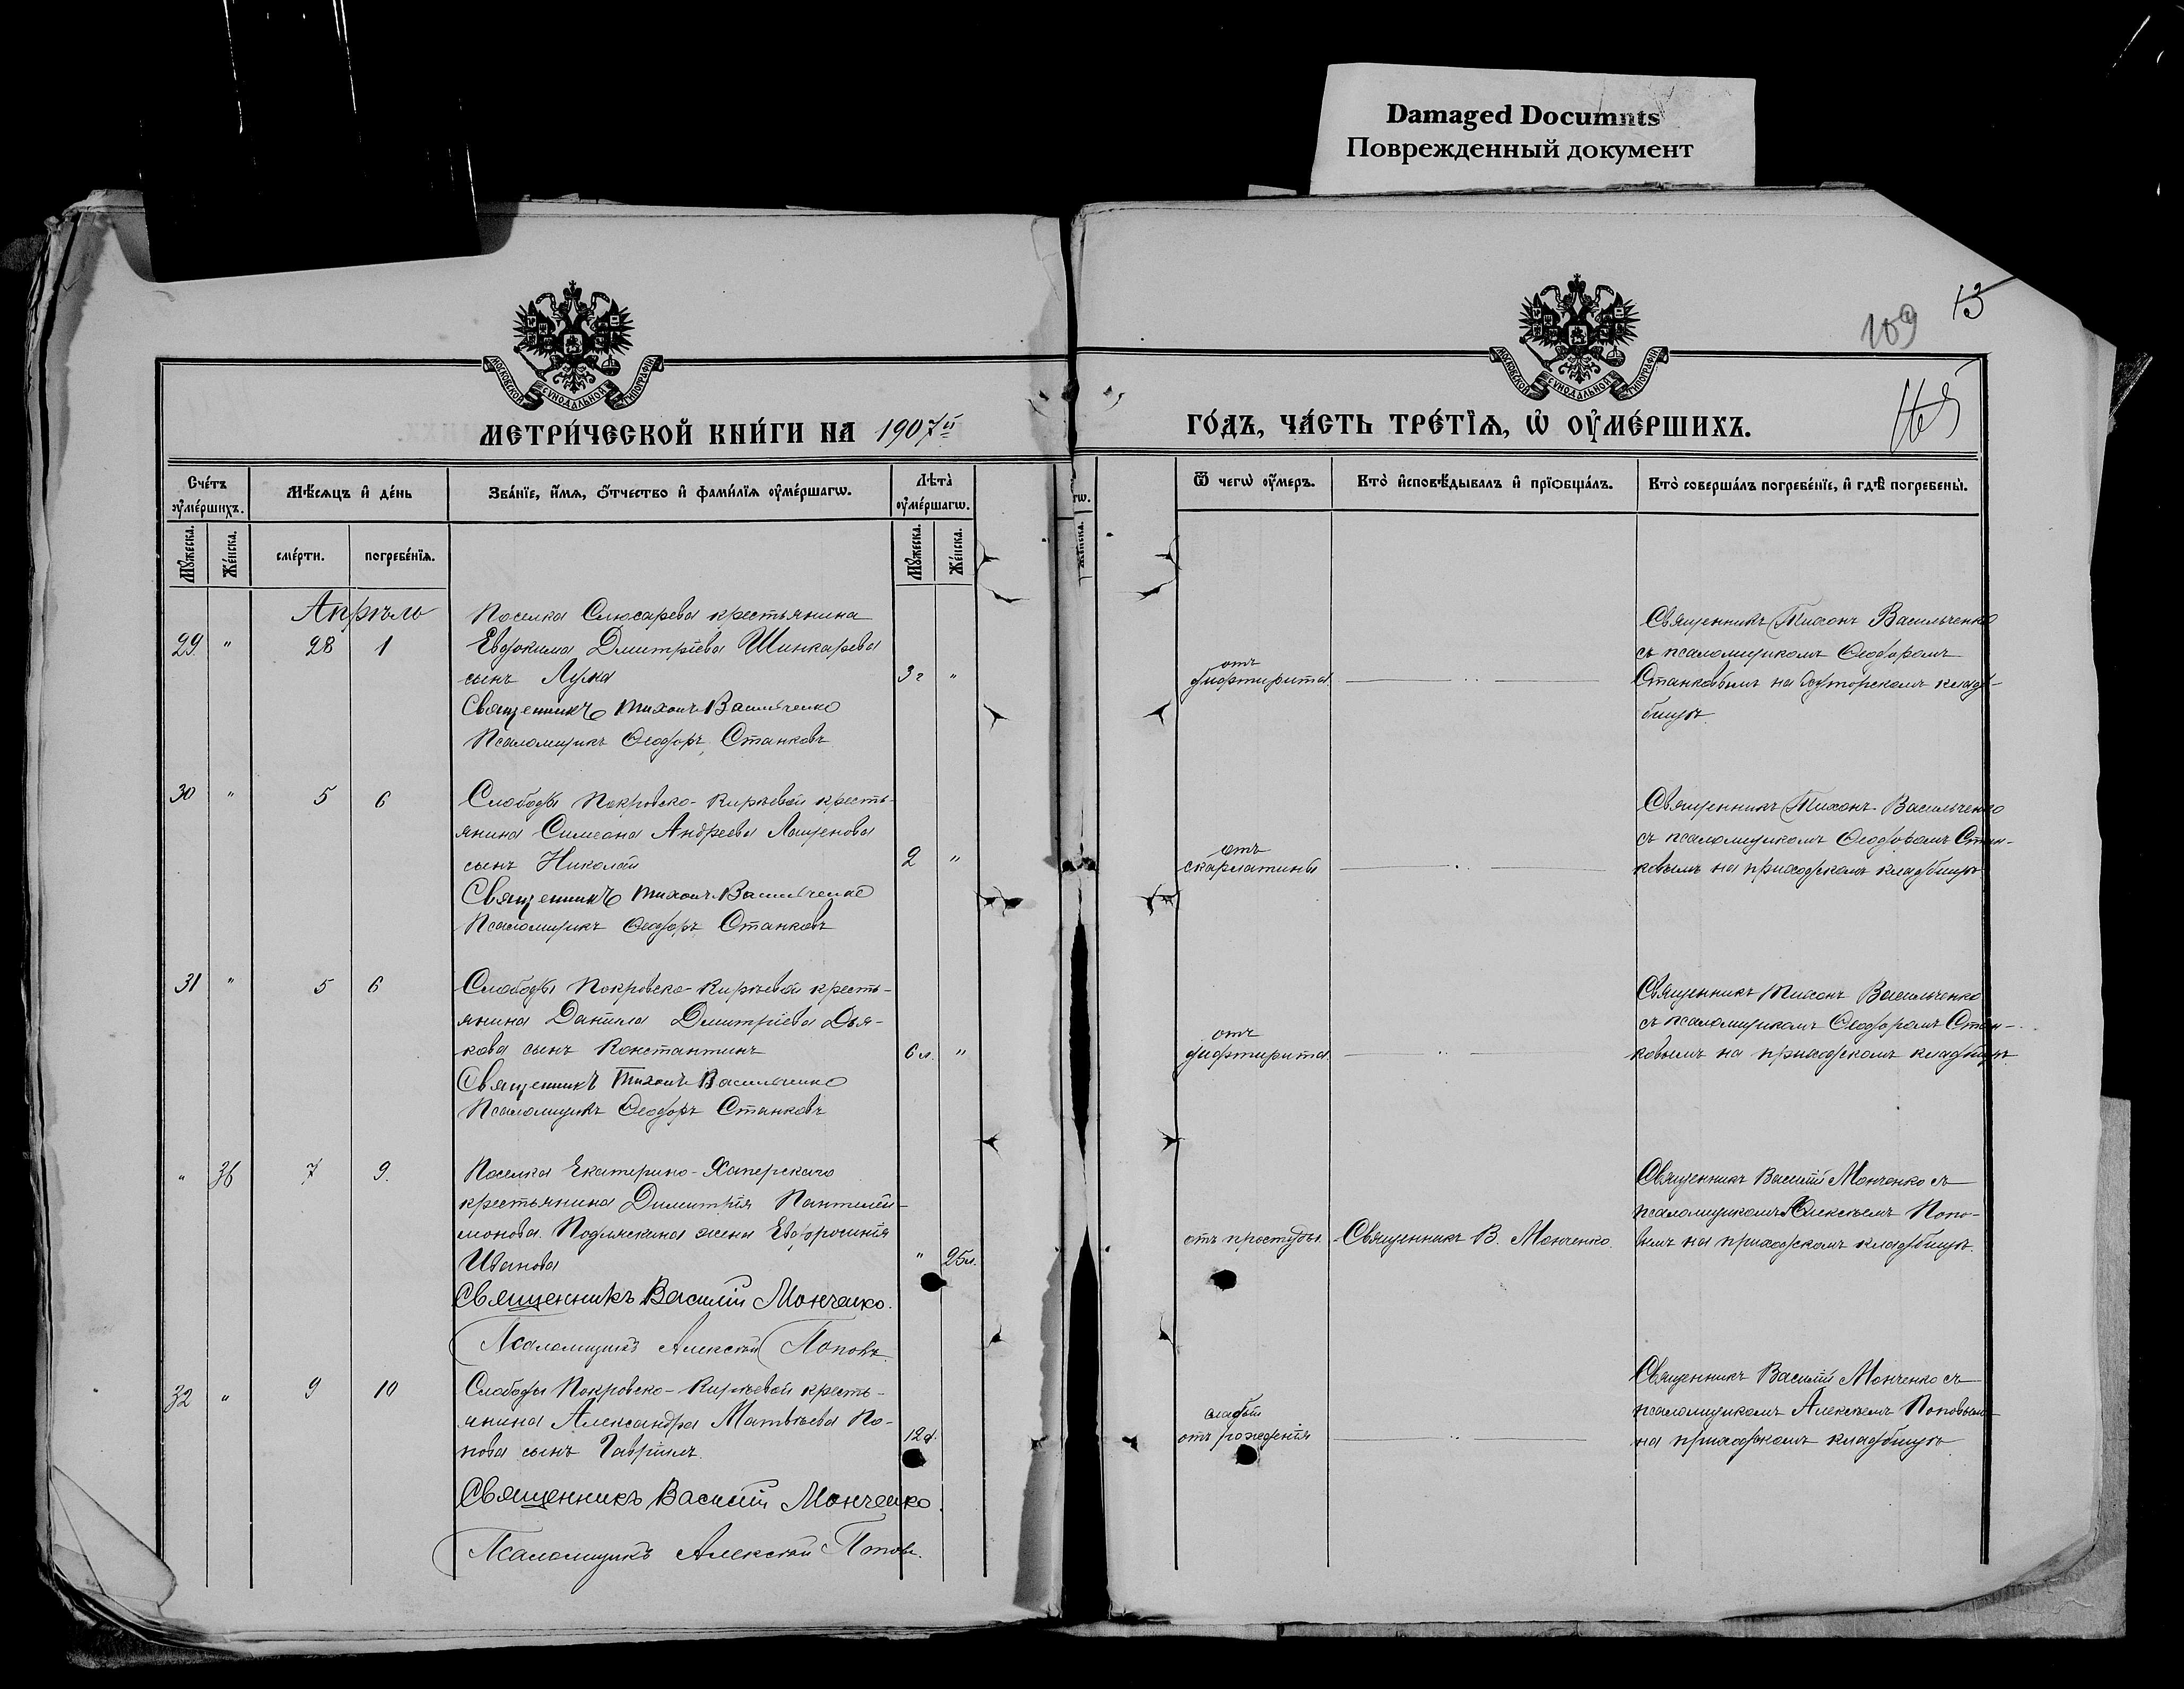 Damaged Documnts
Поврежденный документ
13
109
165
МОСКОВСКОЙ СУНОДАЛЬНОЙ ТИПОГРАФІИ
МОСКОВСКОЙ СУНОДАЛЬНОЙ ТИПОГРАФІИ
МЕТРИ́ЧЕСКОЙ КНИ́ГИ НА 1907й
ГО́ДЪ, ЧА́СТЬ ТРЕ́ТЇѦ, Ѡ҆ ОУ҆МЕ́РШИХЪ.
Сче́тъ оу҆ме́ршихъ.
Мѣ́сѧцъ и҆ де́нь
Зва́нїе, и҆́мѧ, ѻ҆́тчество и҆ фами́лїѧ оу҆ме́ршагѡ.
Лѣта̀ оу҆ме́ршагѡ.
Ѿ чегѡ̀ оу҆́меръ.
Кто̀ и҆сповѣ́дывалъ и҆ прїѡбща́лъ.
Кто̀ соверша́лъ погребе́нїе, и҆ гдѣ̀ погребены̀.
Мꙋ́жеска.
Же́нска.
сме́рти.
погребе́нїѧ.
Мꙋ́жеска.
Же́нска.
гѡ.
Же́нска.
Апрѣль
29 " 28 1
Поселка Слюсарева крестьянина
Евдокима Дмитріева Шинкарева
сынъ Лука 3 г "
Священникъ Тихонъ Васильченко
Псаломщикъ Ѳеодоръ Станковъ
отъ
дифтирита
Священникъ Тихонъ Васильченко
съ псаломщикомъ Ѳеодоромъ
Станковымъ на хуторскомъ клад-
бищѣ.
30 " 5 6
Слободы Покровско-Кирѣевой кресть-
янина Симеона Андреева Лащенова
сынъ Николай 2 "
Священникъ Тихонъ Васильченко
Псаломщикъ Ѳеодоръ Станковъ
отъ
скарлатины
Священникъ Тихонъ Васильченко
съ псаломщикомъ Ѳеодоромъ Стан-
ковымъ на приходскомъ кладбищѣ
31 " 5 6
Слободы Покровско-Кирѣевой кресть-
янина Даніила Димитріева Дья-
кова сынъ Константинъ 6 л. "
Священникъ Тихонъ Васильченко
Псаломщикъ Ѳеодоръ Станковъ
отъ
дифтирита
Священникъ Тихонъ Васильченко
съ псаломщикомъ Ѳеодоромъ Стан-
ковымъ на приходскомъ кладбищѣ
" 36 7 9.
Поселка Екатерино-Хаперскаго
крестьянина Димитрія Пантилей-
монова Подляскина жена Евфросинія
Иванова " 25 л.
Священникъ Василій Монченко.
Псаломщикъ Алексѣй Поповъ
отъ простуды.
Священникъ В. Монченко.
Священникъ Василій Монченко съ
псаломщикомъ Алексѣемъ Попо-
вымъ на приходскомъ кладбищѣ.
32 " 9 10
Слободы Покровско-Кирѣевой кресть-
янина Александра Матвѣева По-
пова сынъ Гавріилъ. 12 д.
Священникъ Василій Монченко.
Псаломщикъ Алексѣй Поповъ.
слабый
отъ рожденія
Священникъ Василій Монченко съ
псаломщикомъ Алексѣемъ Поповымъ
на приходскомъ кладбищѣ